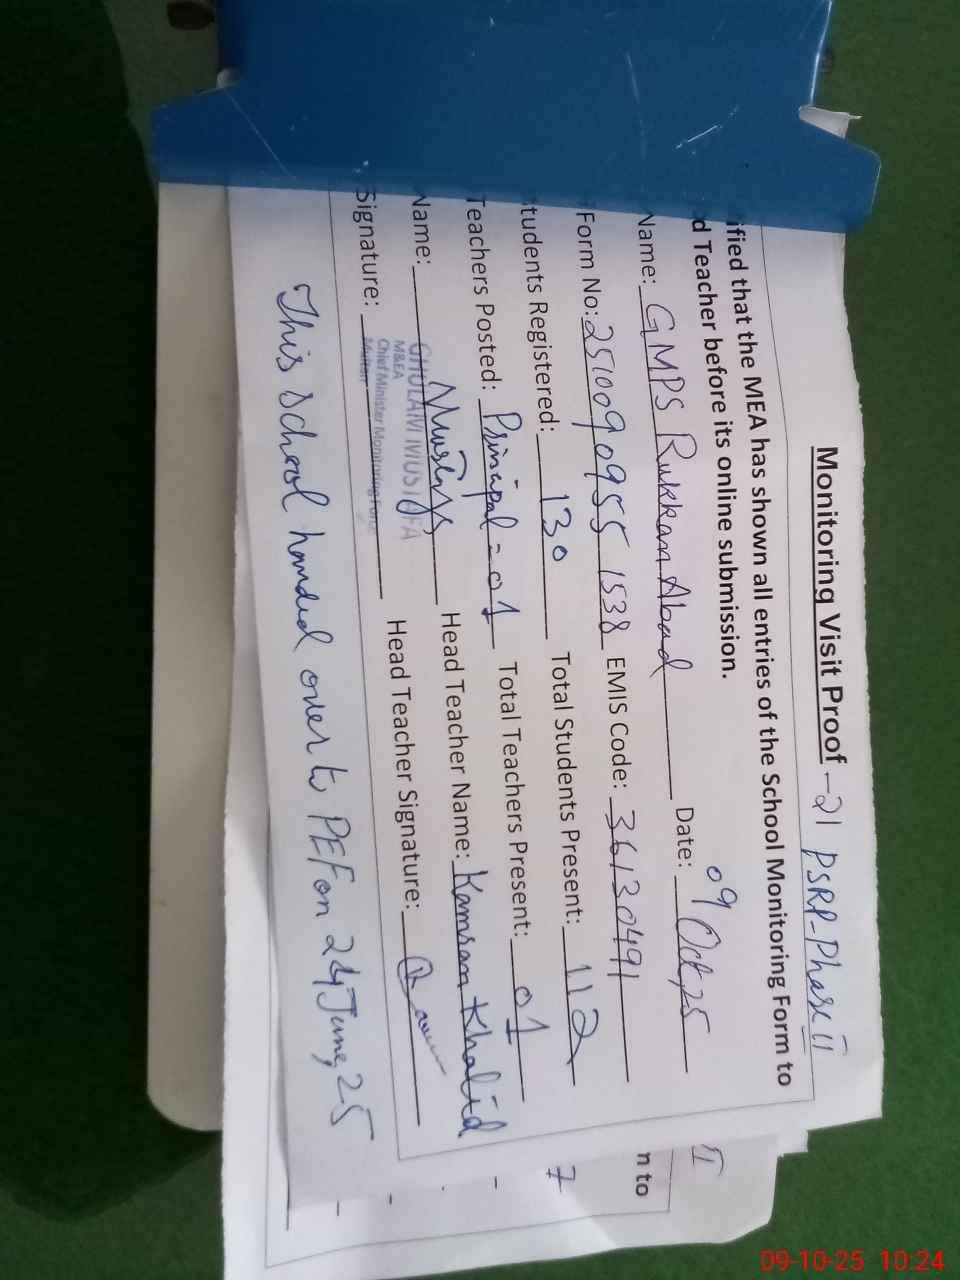 Monitoring Visit Proof -21 PSRP-Phase II
ified that the MEA has shown all entries of the School Monitoring Form to
d Teacher before its online submission.
Name: GMPS Rukkan Abad Date: 09 Oct, 25
Form No: 251009 0955 1538 EMIS Code: 36130491
tudents Registered: 130 Total Students Present: 112
Teachers Posted: Principal - 01 Total Teachers Present: 01
Name: Mustafa Head Teacher Name: Kamran Khalid
GHULAM MUSTAFA
M&EA
Chief Minister Monitoring Force
Multan
Signature: Head Teacher Signature:
This School handed over to PEF on 24 June, 25
II
n to
7
09-10-25 10:24